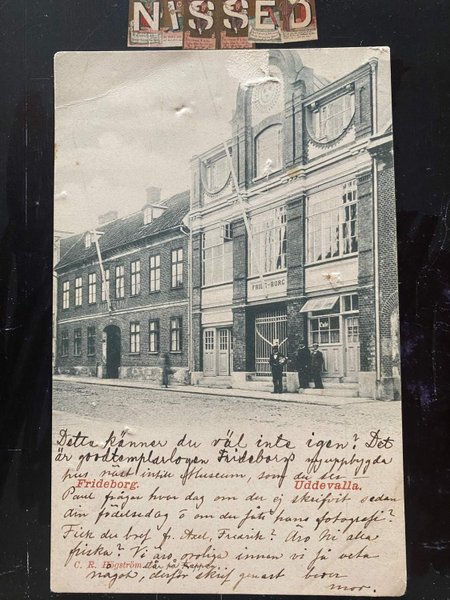 NISSED
FRIDEBORG
Detta känner du väl inte igen? Det
är goodtemplarlogen Frideborgs nyuppbygda
hus näst intill Museum, som du ser
Frideborg. Uddevalla.
Paul frågar hvar dag om du ej skrifvit sedan
din födelsedag o om du fått hans fotografi?
Fick du bref fr. Axel, Fredrik? Äro Ni alla
friska? Vi äro oroliga innan vi få veta
C. R. Högström
något, derför skrif genast beder
mor.